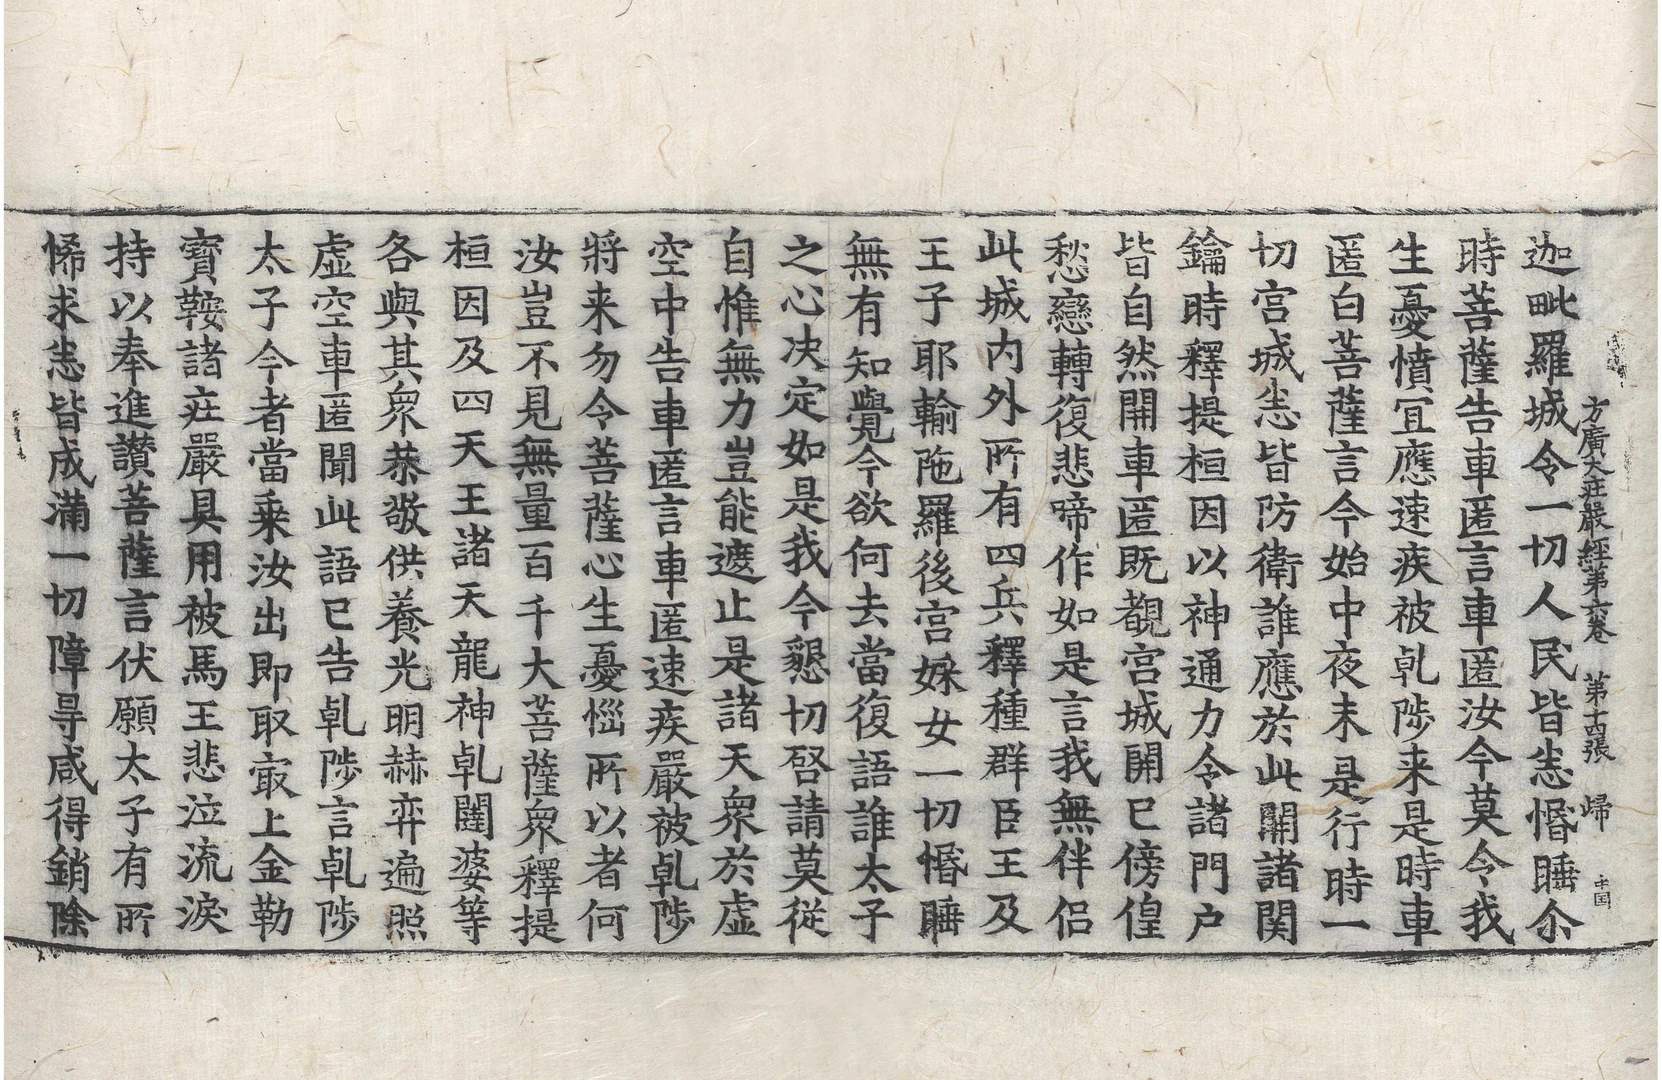 方廣大莊嚴經第六卷 第十四張 歸
迦毗羅城令一切人民皆悉惛睡尒
時菩薩告車匿言車匿汝今莫令我
生憂憒冝應速疾被乹陟来是時車
匿白菩薩言今始中夜未是行時一
切宮城悉皆防衛誰應於此開諸関
鑰時釋提桓因以神通力令諸門户
皆自然開車匿既覩宮城開巳傍偟
愁戀轉復悲啼作如是言我無伴侣
此城内外所有四兵釋種群臣王及
王子耶輸陁羅後宮婇女一切惛睡
無有知覺今欲何去當復語誰太子
之心决定如是我今懇切啓請莫従
自惟無力豈能遮止是諸天衆於虚
空中告車匿言車匿速疾嚴被乹陟
將来勿令菩薩心生憂惱所以者何
汝豈不見無量百千大菩薩衆釋提
桓因及四天王諸天龍神乹闥婆等
各與其衆恭敬供養光明赫弈遍照
虚空車匿聞此語巳告乹陟言乹陟
太子今者當乗汝出即取㝡上金勒
寶鞍諸莊嚴具用被馬王悲泣流淚
持以奉進讃菩薩言伏願太子有所
悕求悉皆成滿一切障㝵咸得銷除